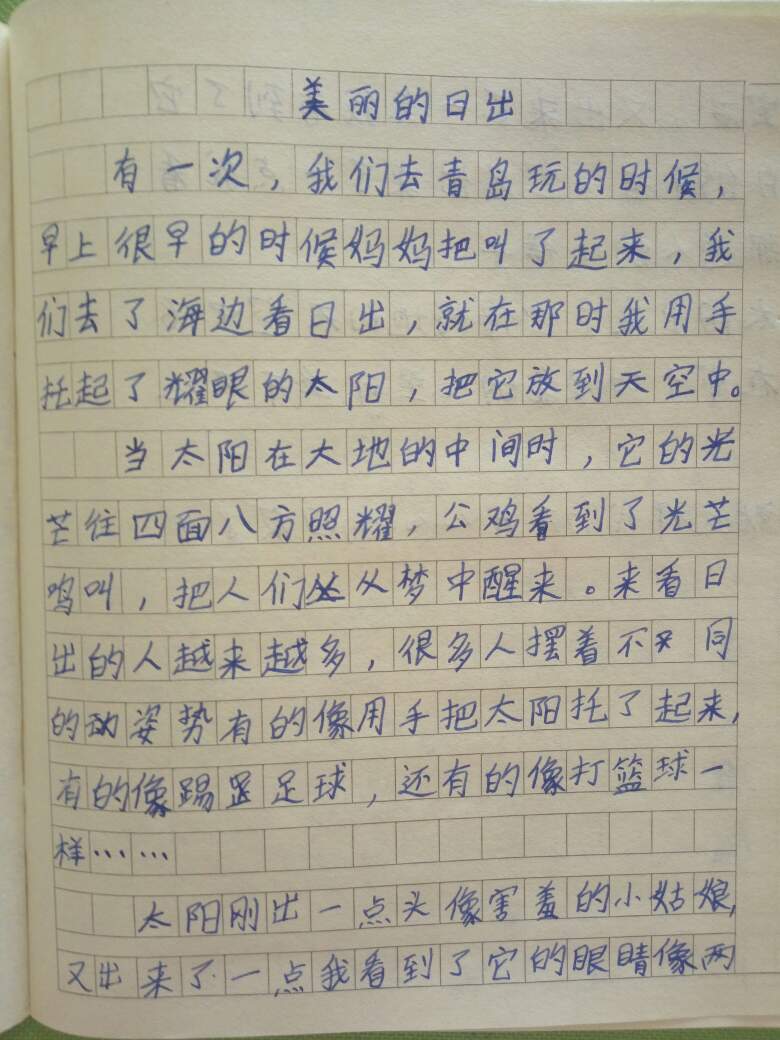 美丽的日出
有一次，我们去青岛玩的时候，
早上很早的时候妈妈把叫了起来，我
们去了海边看日出，就在那时我用手
托起了耀眼的太阳，把它放到天空中。
当太阳在大地的中间时，它的光
芒往四面八方照耀，公鸡看到了光芒
鸣叫，把人们从梦中醒来。来看日
出的人越来越多，很多人摆着不同
的动姿势有的像用手把太阳托了起来，
有的像踢足球，还有的像打篮球一
样……
太阳刚出一点头像害羞的小姑娘，
又出来了一点我看到了它的眼睛像两